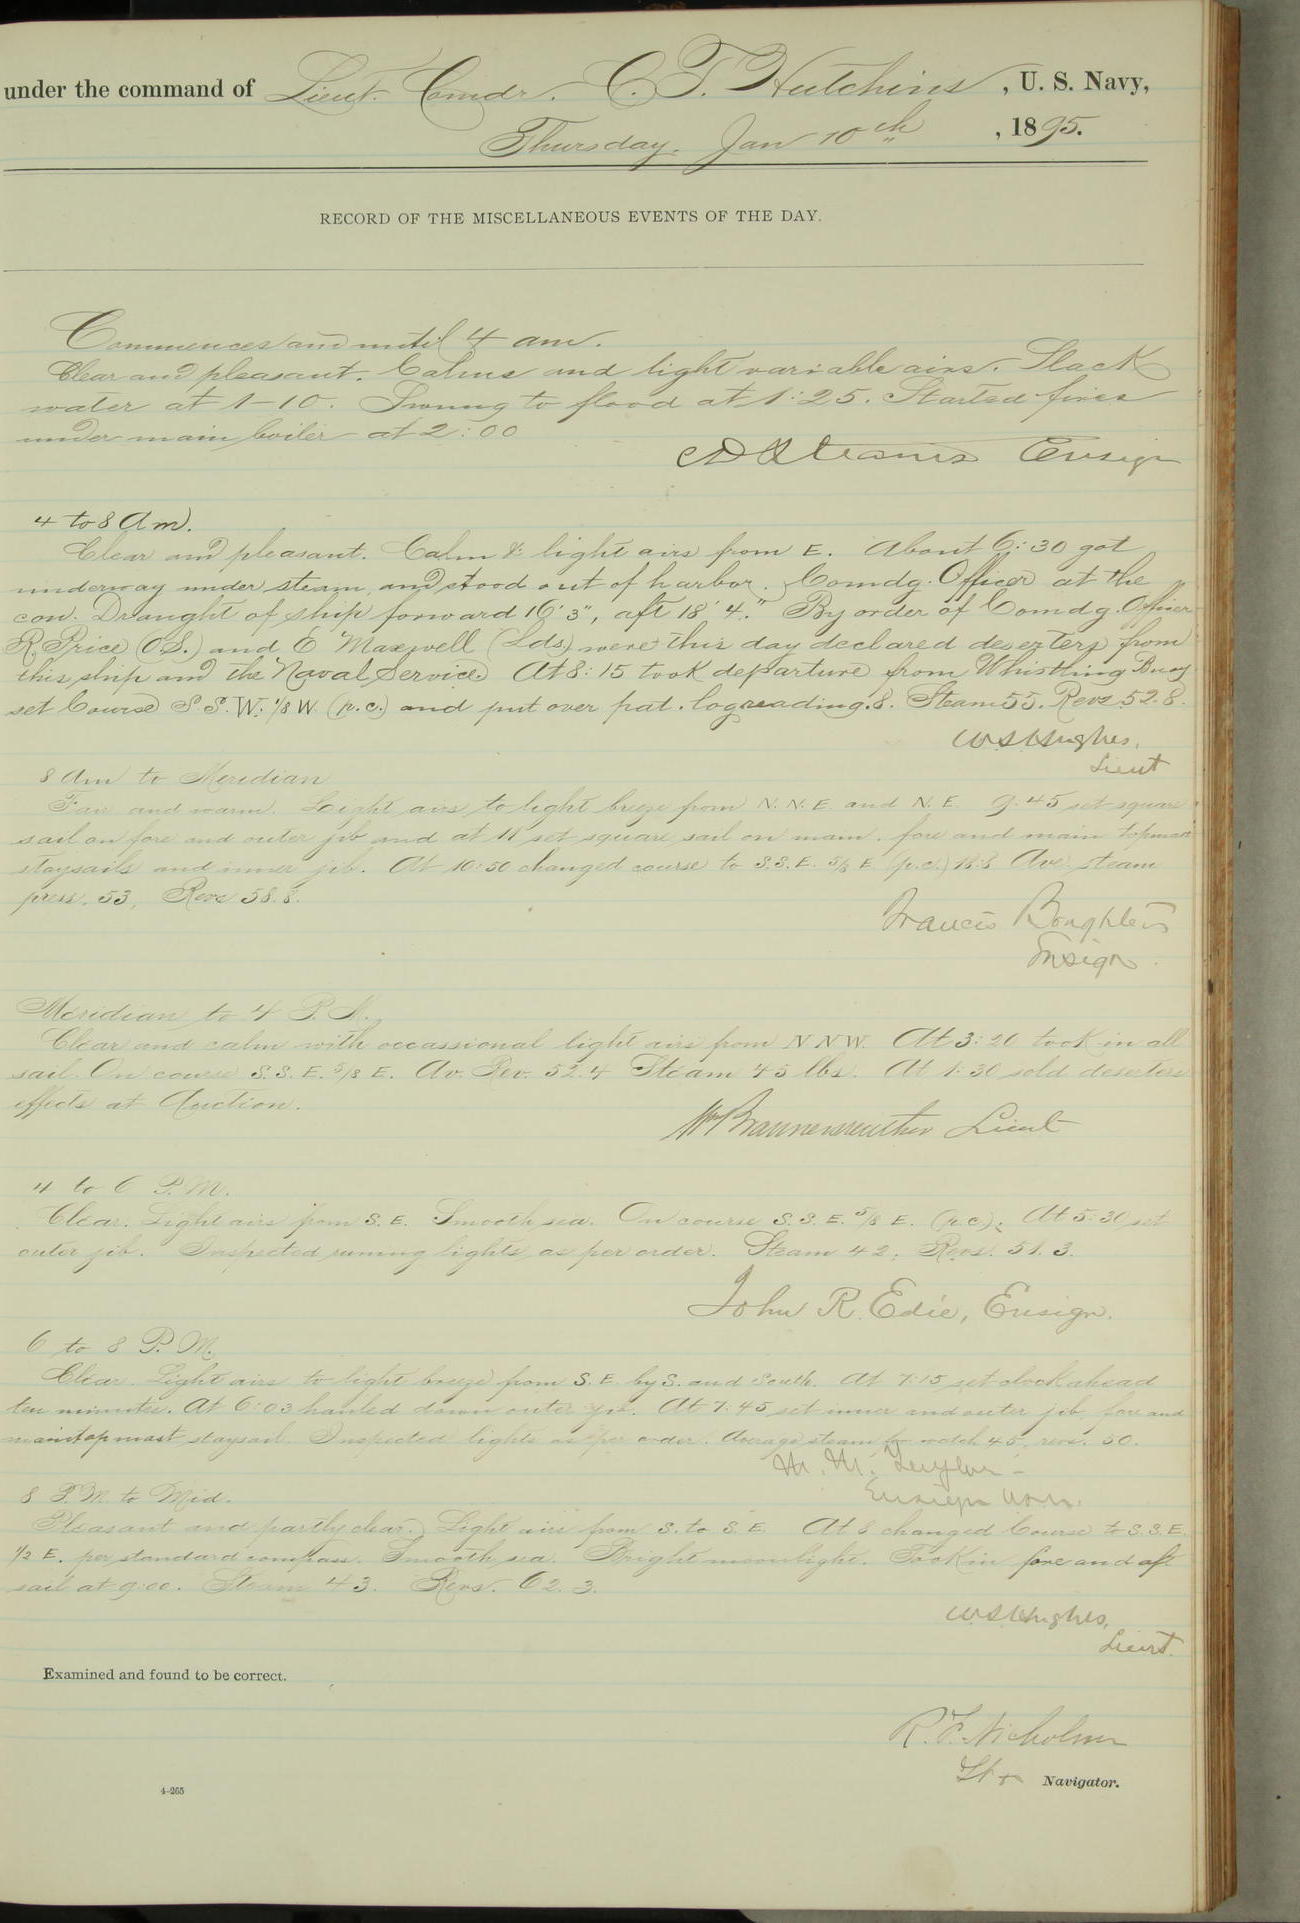 under the command of Lieut. Comdr. C. T. Hutchins, U. S. Navy,
Thursday. Jan 10th, 1895.
RECORD OF THE MISCELLANEOUS EVENTS OF THE DAY.
Commences and until 4 am.
Clear and pleasant. Calms and light variable airs. Slack
water at 1-10. Swung to flood at 1:25. Started fires
under main boiler at 2:00
Ensign
4 to 8 Am.
Clear and pleasant. Calm & light airs from E. About 6:30 got
underway under steam, and stood out of harbor. Comdg. Officer at the
con. Draught of ship forward 16' 3", aft 18' 4." By order of Comdg. Officer
R. Price (O.S.) and E Maxwell (Lds) were this day declared deserters from
this ship and the Naval Service. At 8:15 took departure from Whistling Buoy
set Course S.S.W. 1/8 W (p.c.) and put over pat. log reading .8. Steam 55. Revs 52.8.
W S Hughes,
Lieut
8 Am to Meridian
Fair and warm. Light airs to light breeze from N.N.E. and N.E. 9:45 set square
sail on fore and outer jib and at 11 set square sail on main. fore and main topmast
staysails and inner jib. At 10:50 changed course to S.S.E. 5/8 E (p.c.) 18.8 Ave. steam
press. 53, Revs 58.8.
Francis Boughter
Ensign.
Meridian to 4 P.M.
Clear and calm with occassional light airs from NNW. At 3:20 took in all
sail. On course S.S.E. 5/8 E. Av. Rev. 52.4 Steam 45 lbs. At 1:30 sold deserters
effects at Auction.
Wm Braunersreuther Lieut
4 to 6 P.M.
Clear. Light airs from S.E. Smooth sea. On course S.S.E. 5/8 E. (p.c.). At 5:30 set
outer jib. Inspected running lights as per order. Steam 42; Revs. 51.3.
John R. Edie, Ensign.
6 to 8 P.M.
Clear. Light airs to light breeze from S.E. by S. and South. At 7:15 set clock ahead
ten minutes. At 6:03 hauled down outer jib. At 7:45 set inner and outer jib, fore and
main topmast staysail. Inspected lights as per order. Average steam for watch 45, revs. 50.
Ensign U.S.N.
8 P.M. to Mid.
Pleasant and partly clear. Light airs from S. to S.E. At 8 changed Course to S.S.E.
1/2 E. per standard compass. Smooth sea. Bright moonlight. Took in fore and aft
sail at 9:00. Steam 43. Revs. 62.3.
W S Hughes,
Lieut.
Examined and found to be correct.
R. F. Nicholson
Lt Navigator.
4-265